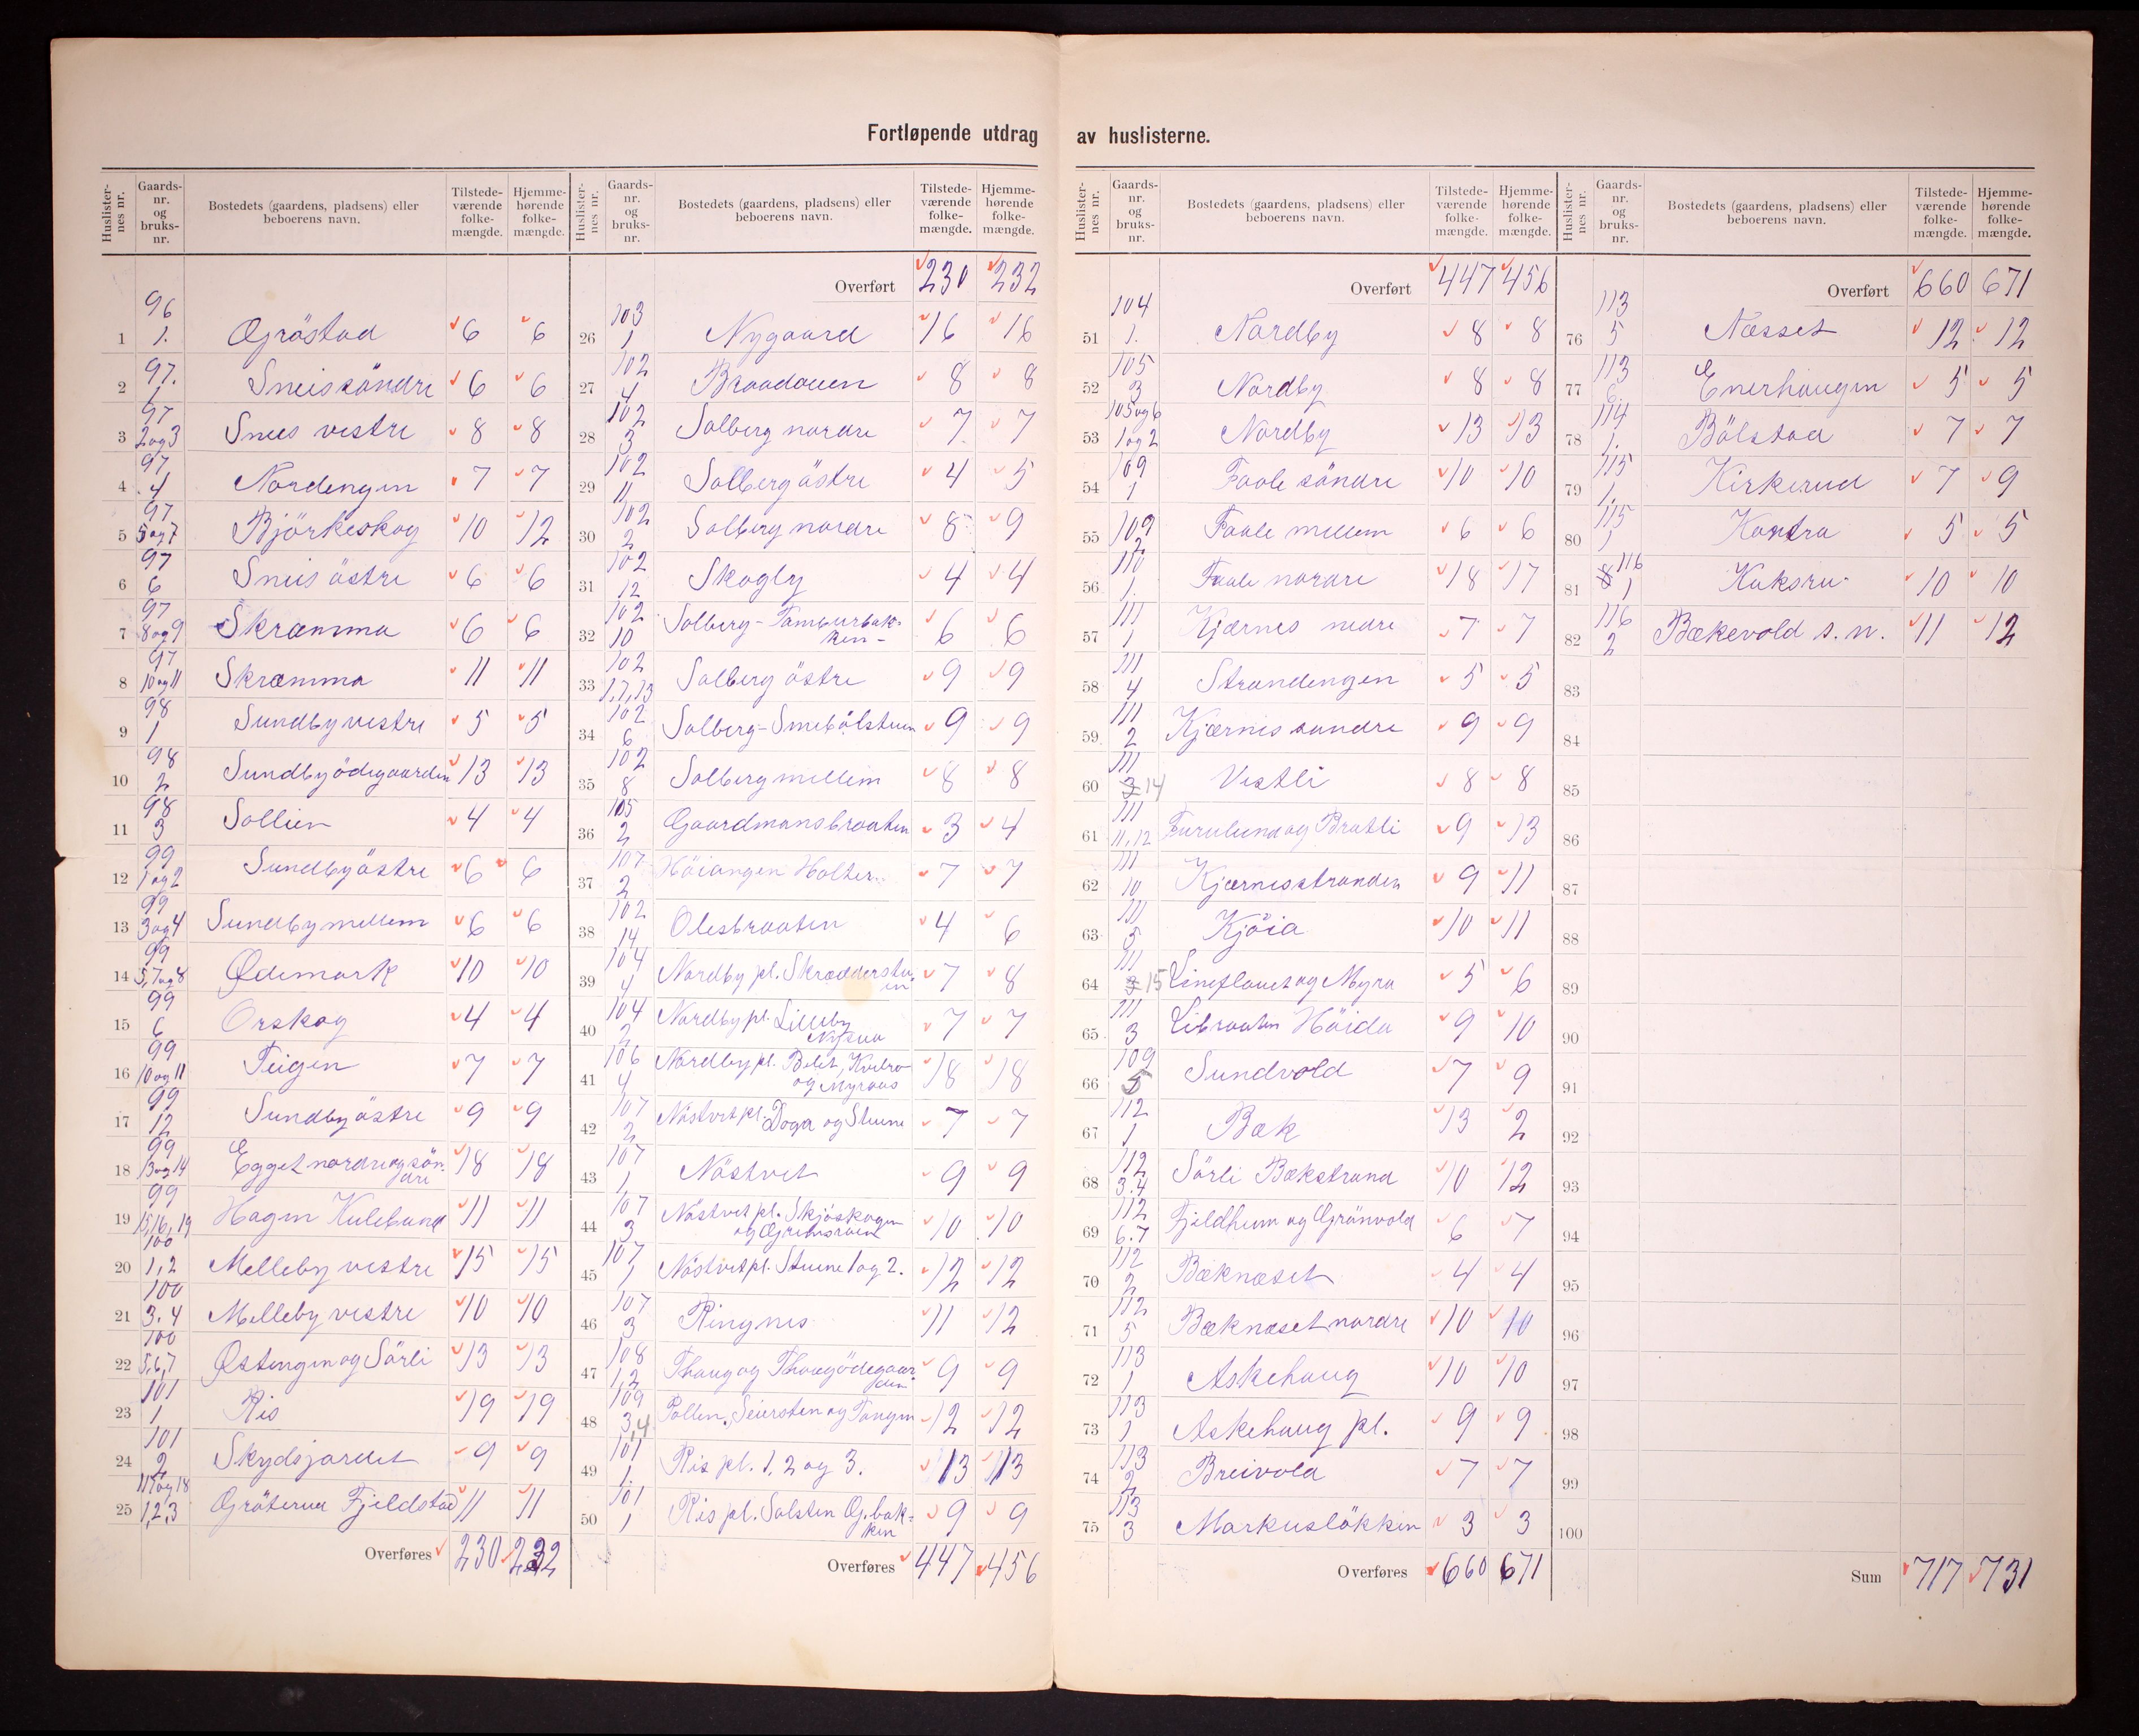 Fortløpende utdrag av huslisterne.
Huslister-nes nr. Gaards-nr. og bruks-nr. Bostedets (gaardens, pladsens) eller beboerens navn. Tilstede-værende folke-mængde. Hjemme-hørende folke-mængde.
1 96 1. Gråstad 6 6
2 97. 1 Sneis söndre 6 6
3 97 2 og 3 Sneis vestre 8 8
4 97 4 Nordengen 7 7
5 97 5 og 7 Björkeskog 10 12
6 97 6 Sneis östre 6 6
7 97 8 og 9 Skramma 6 6
8 97 10 og 11 Skramma 11 11
9 98 1 Sundby vestre 5 5
10 98 2 Sundbyödegaarden 13 13
11 98 3 Sollien 4 4
12 99 1 og 2 Sundby östre 6 6
13 99 3 og 4 Sundby mellem 6 6
14 99 5, 7 og 8 Ødemark 10 10
15 99 6 Orskog 4 4
16 99 10 og 11 Teigen 7 7
17 99 12 Sundby östre 9 9
18 99 13 og 14 Egget nordre og sön dre 18 18
19 99 15, 16, 19 Hagen Kulebund 11 11
20 100 1, 2 Melleby vestre 15 15
21 100 3. 4 Melleby vestre 10 10
22 100 5, 6, 7 Østengen og Sörli 13 13
23 101 1 Ris 19 19
24 101 2 Skydsjordet 9 9
25 117 og 18 1, 2, 3 Gråterud Fjeldstad 11 11
Overføres 230 232
Huslister-nes nr. Gaards-nr. og bruks-nr. Bostedets (gaardens, pladsens) eller beboerens navn. Tilstede-værende folke-mængde. Hjemme-hørende folke-mængde.
Overført 230 232
26 103 1 Nygaard 16 16
27 102 4 Braadouen 8 8
28 102 3 Solberg nordre 7 7
29 102 11 Solberg östre 4 5
30 102 2 Solberg nordre 8 9
31 102 12 Skogly 4 4
32 102 10 Solberg-Tamburbak-
ken- 6 6
33 102 1, 7, 13 Solberg östre 9 9
34 102 6 Solberg-Smebölstuen 9 9
35 102 8 Solberg mellem 8 8
36 105 2 Gaardmansbraaten 3 4
37 107 2 Höiangen Holter. 7 7
38 102 14 Olesbraaten 4 6
39 104 4 Nordby pl. Skrædderstu-
en 7 8
40 104 2 Nordby pl. Lilleby
Nysua 7 7
41 106 4 Nordby pl. Bilit, Kvilro
og Myraas 18 18
42 107 2 Nöstvet pl. Doga og Stuene 7 7
43 107 1 Nöstvet 9 9
44 107 3 Nöstvet pl. Skjöskogen
og Grensroen 10 10
45 107 1 Nöstvet pl. Stuene 1 og 2. 12 12
46 107 3 Ringnes 11 12
47 108 1, 2 Thaug og Thaugödegaar-
den 9 9
48 109 3, 4 Pollen, Seiersten og Tangen 12 12
49 101 1. Ris pl. 1, 2 og 3. 13 13
50 101 1 Ris pl. Solsten Og. bak-
ken 9 9
Overføres 447 456
Huslister-nes nr. Gaards-nr. og bruks-nr. Bostedets (gaardens, pladsens) eller beboerens navn. Tilstede-værende folke-mængde. Hjemme-hørende folke-mængde.
Overført 447 456
51 104 1. Nordby 8 8
52 105 3 Nordby 8 8
53 105 og 6 1 og 2 Nordby 13 13
54 109 1 Faale söndre 10 10
55 109 2 Faale mellem 6 6
56 110 1. Faale nordre 18 17
57 111 1 Kjærnes nedre 7 7
58 111 4 Strandengen 5 5
59 111 2 Kjærnes sondre 9 9
60 111 3 14 Vestli 8 8
61 111 11, 12 Furulund og Bratli 9 13
62 111 10 Kjærnesstranden 9 11
63 111 5 Kjöia 10 11
64 111 3 15 Lineflaaet og Myra 5 6
65 111 3 Libraaten Höida 9 10
66 109 5 Sundvold 7 9
67 112 1 Bæk 13 2
68 112 3. 4 Sörli Bækstrand 10 12
69 112 6. 7 Fjeldheim og Grönvold 6 7
70 112 2 Bæknæset 4 4
71 112 5 Bæknæset nordre 10 10
72 113 1 Askehaug 10 10
73 113 1 Askehaug pl. 9 9
74 113 2 Breivold 7 7
75 113 3 Markuslökken 3 3
Overføres 660 671
Huslister-nes nr. Gaards-nr. og bruks-nr. Bostedets (gaardens, pladsens) eller beboerens navn. Tilstede-værende folke-mængde. Hjemme-hørende folke-mængde.
Overført 660 671
76 113 5 Næsset 12 12
77 113 6 Enerhaugen 5 5
78 114 1. Bölstad 7 7
79 115 1. Kirkerud 7 9
80 115 1 Kontra 5 5
81 116 8 1 Kuksru 10 10
82 116 2 Bækevold s. n. 11 12
83
84
85
86
87
88
89
90
91
92
93
94
95
96
97
98
99
100
Sum 717 731